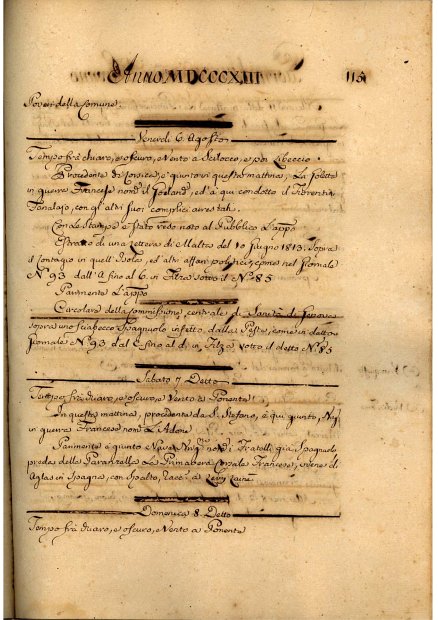 Anno MDCCCXIII 115
Poveri della Comune.
Venerdì 6. Agosto
Tempo frà chiaro, e oscuro, Vento a Scilocco, e poi Libeccio
Procedente di è quinto in questa mattina, La Goletta
in guerra Francese nom.
con gl'altri suoi complici arrestati.
Con le Stampe è stato reso noto al Pubblico L'app.
Estratto di una Lettera di Malta del 10 Giugno 1813. Sopra
il Contagio in quell'Isola, ed altri affari politici, come nel Giornale
N. 93 dall'A fino al 6. in Filza sotto il N. 85
Parimente L'app.
Circolare della Commissione centrale di Sanità di Genova
sopra uno Sciabecco Spagnuolo infetto dalla Peste, come in detto
Giornale N. 93 dal C fino al d. in Filza sotto il detto N. 85
Sabato 7 Detto
Tempo frà chiaro, e oscuro, e Vento a Ponente
In questa mattina, procedente da S. Stefano, è qui giunto,
in guerra Francese nom.
Parimente è giunto Nave i Fratelli, già Spagnuolo
preda della Paranzella La Primavera Corsale Francese, viene di
in Spagna, con Spalto, a
Domenica 8. Detto
Tempo frà chiaro, e oscuro, e Vento a Ponente